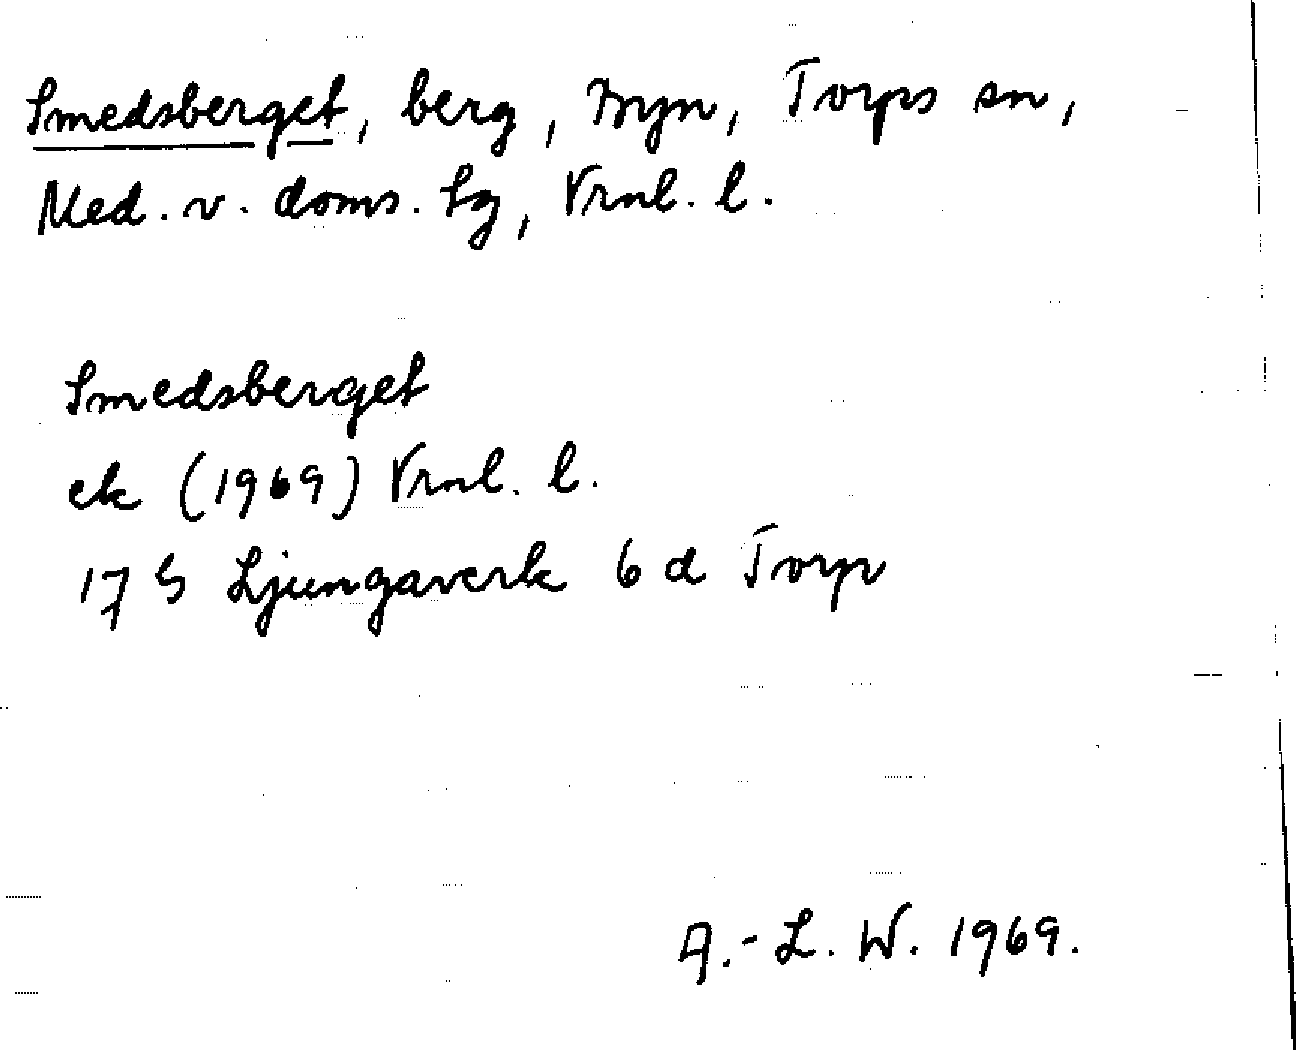 Smedsberget, berg, Myn, Torps sn,
Med. v. doms. tg, Vrnl. l.
Smedsberget
ek (1969) Vrnl. l.
17 G Ljungaverk 6 d Torp
A.-L. W. 1969.